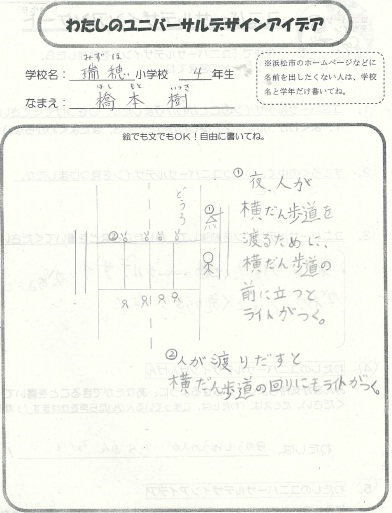 わたしのユニバーサルデザインアイデア
みずほ
学校名： 瑞穂 小学校 4 年生
はし もと いつき
なまえ： 橋本 樹
※浜松市のホームページなどに
名前を出したくない人は、学校
名と学年だけ書いてね。
絵でも文でもOK！自由に書いてね。
どうろ
①
②
①夜、人が
横だん歩道を
渡るために、
横だん歩道の
前に立つと
ライトがつく。
②人が渡りだすと
横だん歩道の回りにモライトがつく。